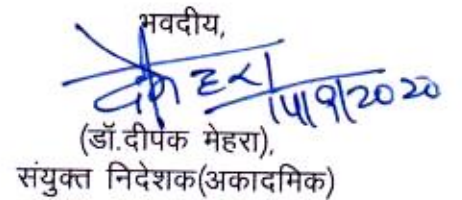 भवदीय,
14/9/2020
(डॉ.दीपक मेहरा),
संयुक्त निदेशक(अकादमिक)